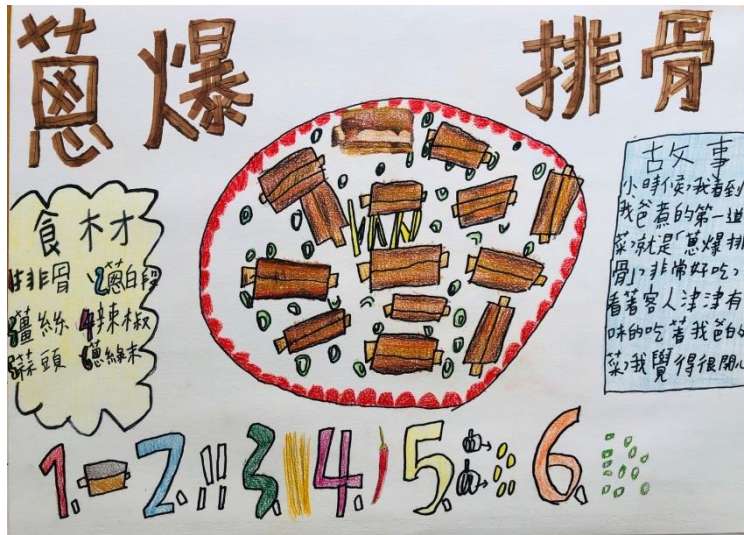 蔥爆
排骨
食材
1排骨 2蔥白段
3薑絲 4辣椒
5蒜頭 6蔥綠末
故事
小時候,我看到
我爸煮的第一道
菜,就是「蔥爆排
骨」,非常好吃,
看著客人津津有
味的吃著我爸的
菜,我覺得很開心
1. 2. 3. 4. 5. 6.